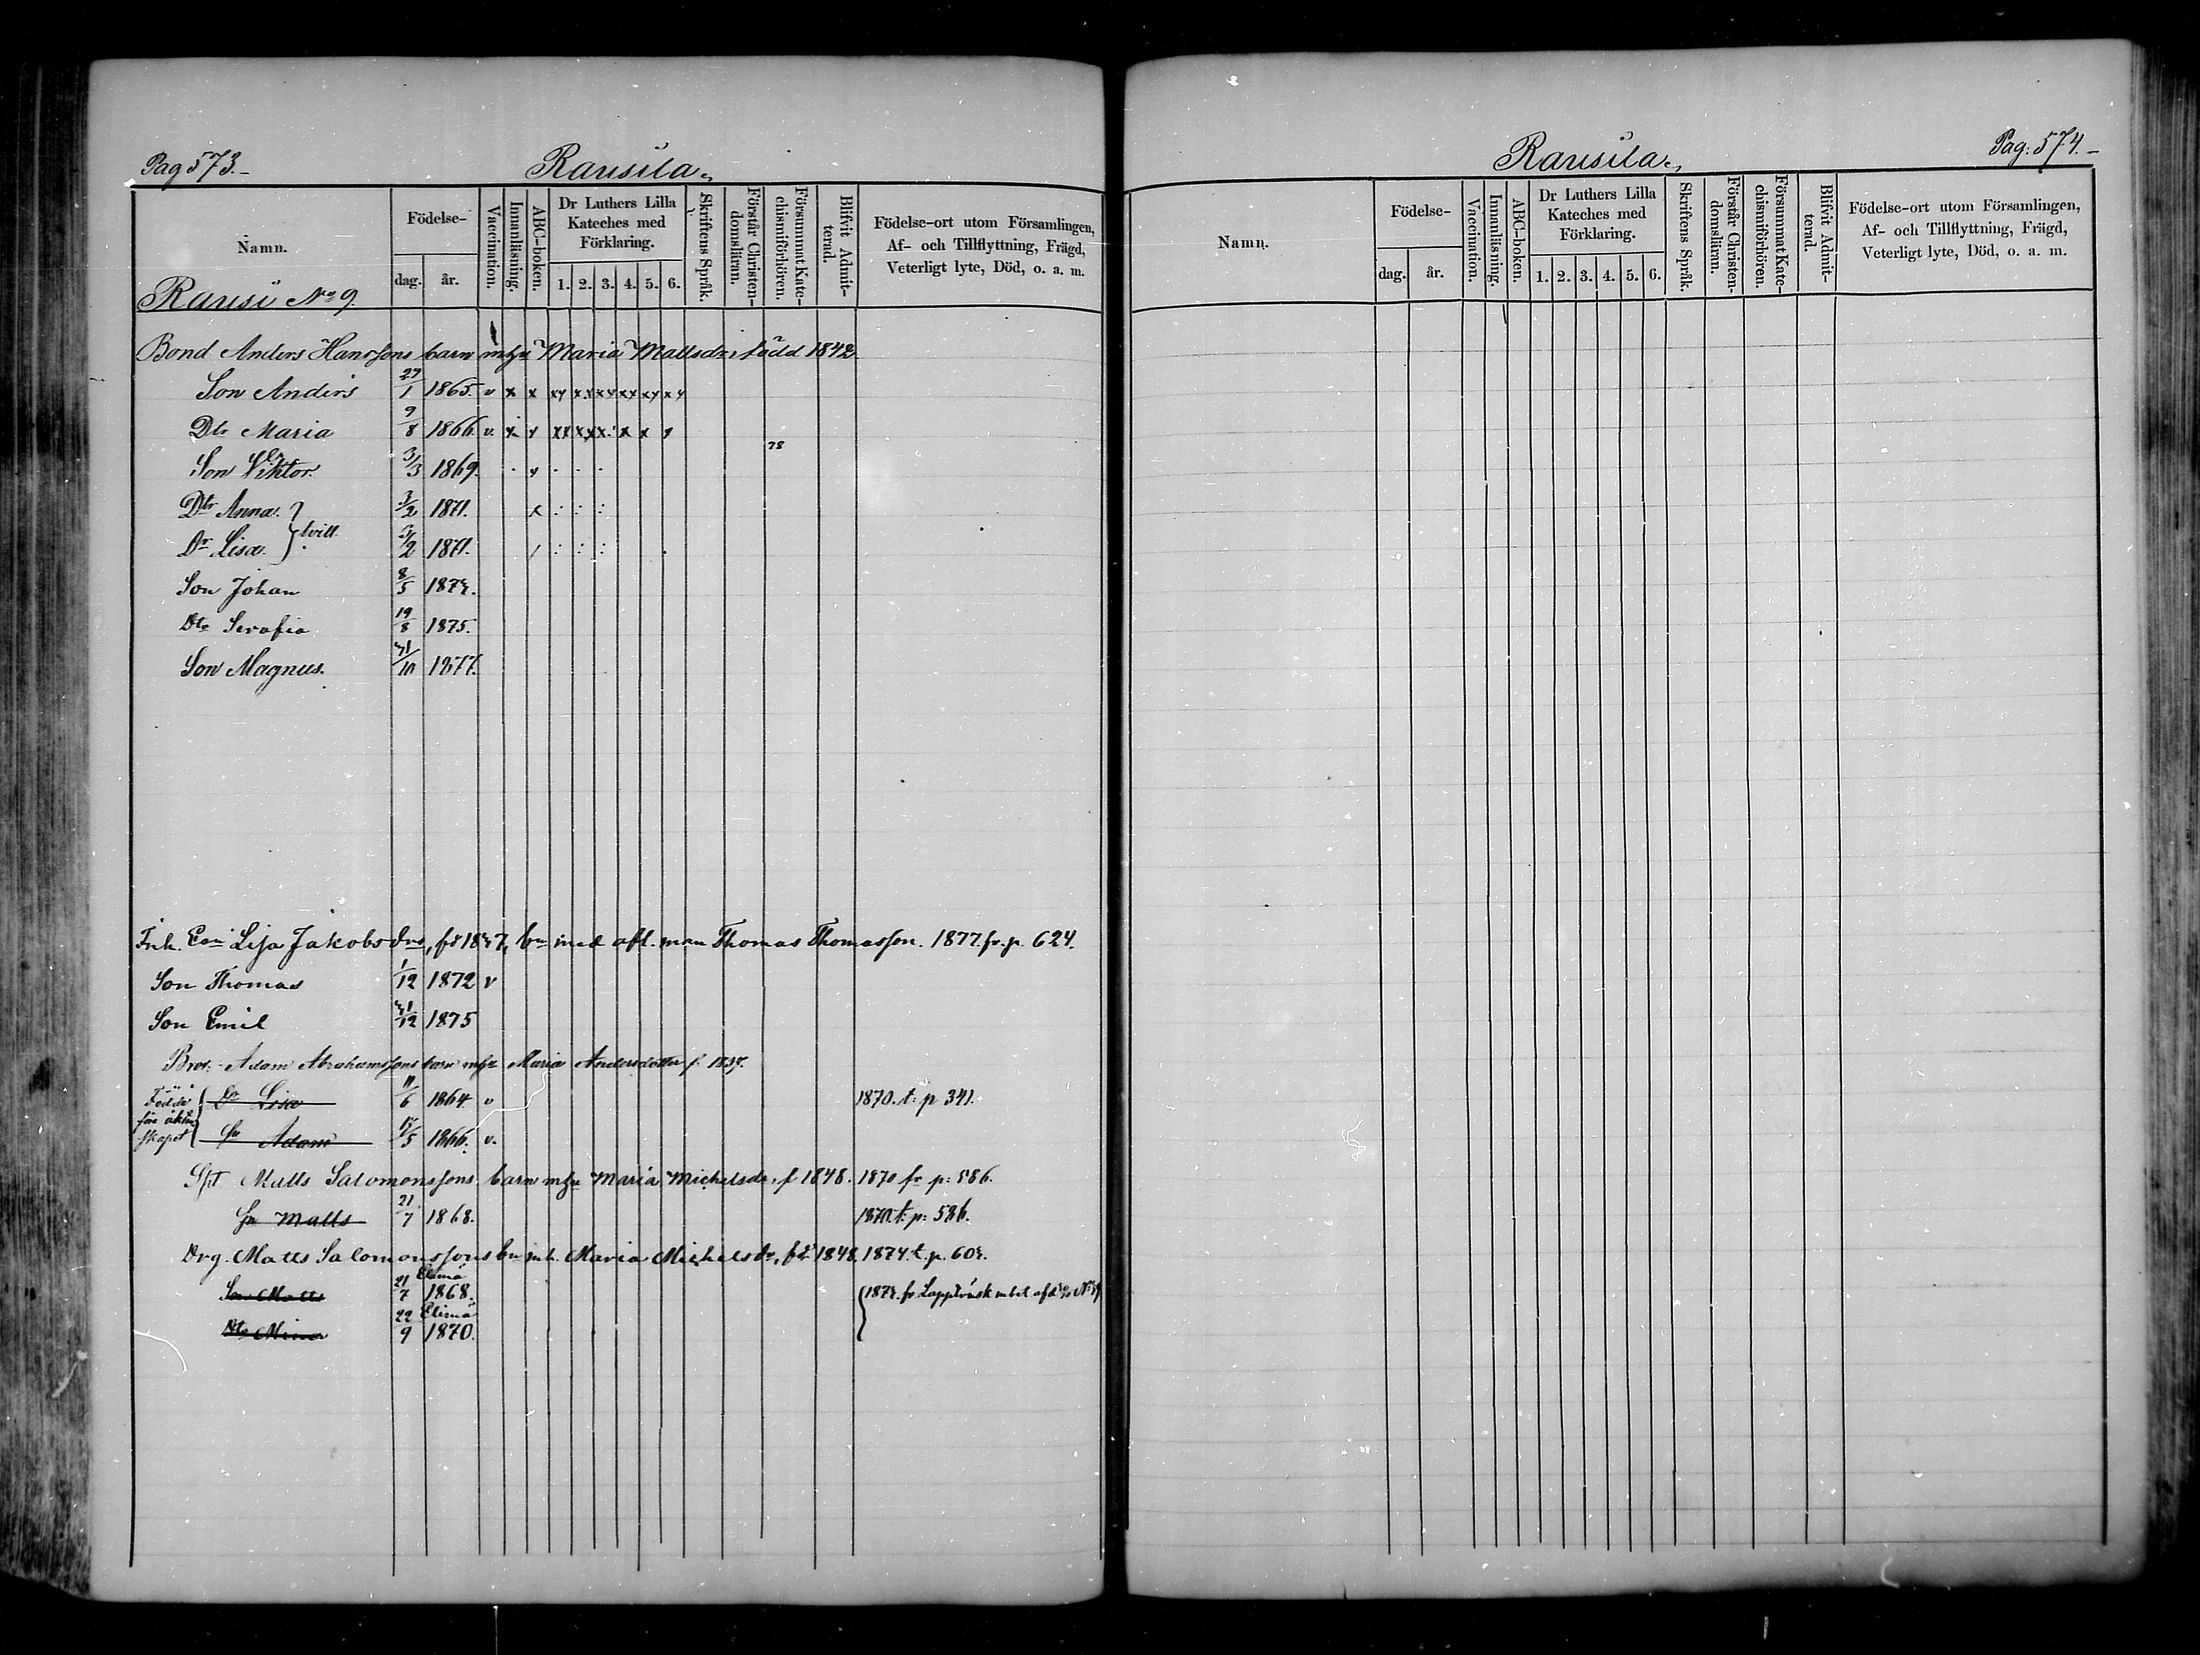 Pag 573.
Rausila.
Namn.
Födelse-
dag. år.
Vaccination.
Innanläsning.
ABC-boken.
Dr Luthers Lilla Kateches med Förklaring.
1. 2. 3. 4. 5. 6.
Skriftens Språk.
Förstår Christendomsläran.
Försummat Katechismiförhören.
Blifvit Admitterad.
Födelse-ort utom Församlingen, Af- och Tillflyttning, Frägd, Veterligt lyte, Död, o. a. m.
Rausi No 9.
Bond Anders Hanssons barn mhu Maria Mattsdr, född 1842.
Son Anders 29/1 1865. v x x xx xx xx xx xx xx
Dtr Maria 9/8 1866. v. x x xx xx x x x x
78
Son Viktor 3/3 1869.
Dtr Anna } tvill. 3/2 1871.
Dr Lisa. 3/2 1871.
Son Johan 8/5 1873.
Dtr Serafia 19/8 1875.
Son Magnus. 31/10 1877.
Inh. Lisa Jakobsdr, fd 1847, bn med afl. man Thomas Thomasson. 1877 fr. p. 624.
Son Thomas 1/12 1872 v
Son Emil 31/12 1875
Adam Abrahamssons barn mhu Maria Andersdotter f. 1837.
Födde före äktenskapet { Dr Lisa 11/6 1864 v 1870. t. p 341.
Sn Adam 17/5 1866. v.
Matts Salomonssons barn mhu Maria Michelsdr, f 1848. 1870 fr p: 586.
Sn Matts 21/7 1868. 1870. t: p: 586.
Drg. Matts Salomonssons bn mh. Maria Michelsdr, fd 1848. 1874. t. p. 603.
Son Matts 21/7 Elimä 1868. { 1873. fr Lappträsk
Dtr Mina 22/9 Elimä 1870.
Rausila.
Pag: 574.
Namn.
Födelse-
dag. år.
Vaccination.
Innanläsning.
ABC-boken.
Dr Luthers Lilla Kateches med Förklaring.
1. 2. 3. 4. 5. 6.
Skriftens Språk.
Förstår Christendomsläran.
Försummat Katechismiförhören.
Blifvit Admitterad.
Födelse-ort utom Församlingen, Af- och Tillflyttning, Frägd, Veterligt lyte, Död, o. a. m.